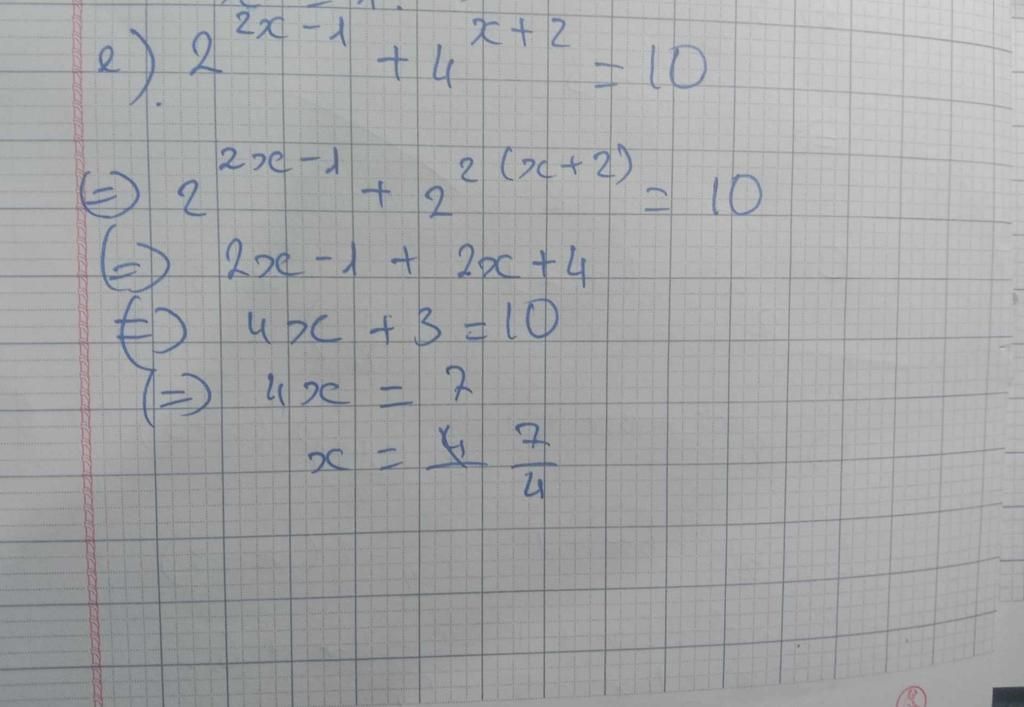 e). 2^(2x-1) + 4^(x+2) = 10
(=) 2^(2x-1) + 2^(2(x+2)) = 10
(=) 2x-1 + 2x+4
(=) 4x + 3 = 10
(=) 4x = 7
x = 7/4